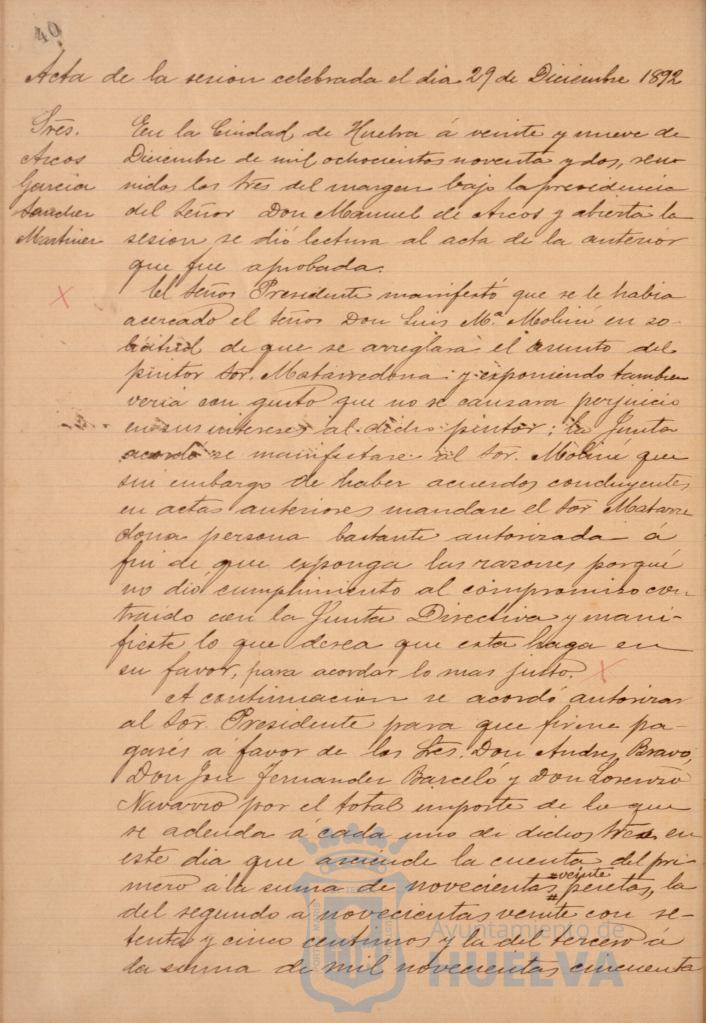 40
Acta de la sesion celebrada el dia 29 de Diciembre 1892
Sres.
Arcos
Garcia
Sanchez
Martinez
En la Ciudad de Huelva á veinte y nueve de
Diciembre de mil ochocientos noventa y dos, reu-
nidos los Sres del margen bajo la presidencia
del Señor Don Manuel de Arcos y abierta la
sesion se dió lectura al acta de la anterior
que fue aprobada.
El Señor Presidente manifestó que se le habia
acercado el Señor Don Luis Mª Molini en so-
licitud de que se arreglara el asunto del
pintor Sor. Matarredona y exponiendo tambien
veria con gusto que no se causara perjuicio
en sus intereses al dicho pintor; la Junta
acordó se manifestase al Sor. Molini que
sin embargo de haber acuerdos concluyentes
en actas anteriores mandase el Sor Matarre
dona persona bastante autorizada á
fin de que exponga las razones porqué
no dió cumplimiento al compromiso con-
traido con la Junta Directiva y mani-
fieste lo que desea que esta haga en
su favor, para acordar lo mas justo.
A continuacion se acordó autorizar
al Sor. Presidente para que firme pa-
garés a favor de los Sres. Don Andres Bravo,
Don José Fernandez Barceló y Don Lorenzo
Navarro por el total importe de lo que
se adeuda á cada uno de dichos Sres, en
este dia que asciende la cuenta del pri-
mero á la suma de novecientas #veinte# pesetas, la
del segundo á novecientas veinte con se-
tenta y cinco centimos y la del tercero á
la suma de mil novecientas cincuenta
Ayuntamiento de
HUELVA